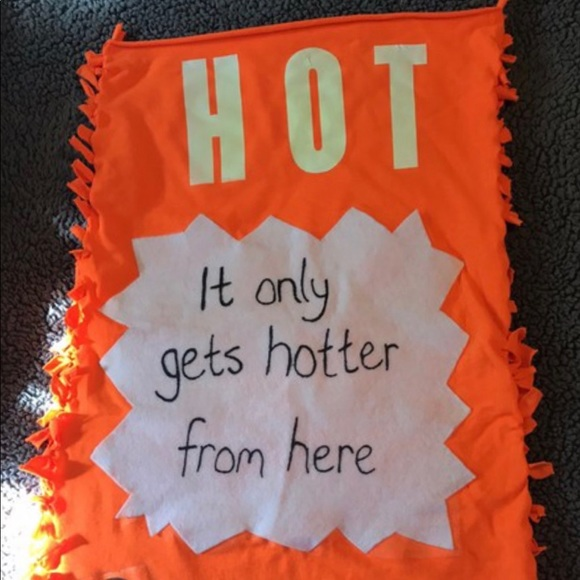 HOT
It only
gets hotter
from here